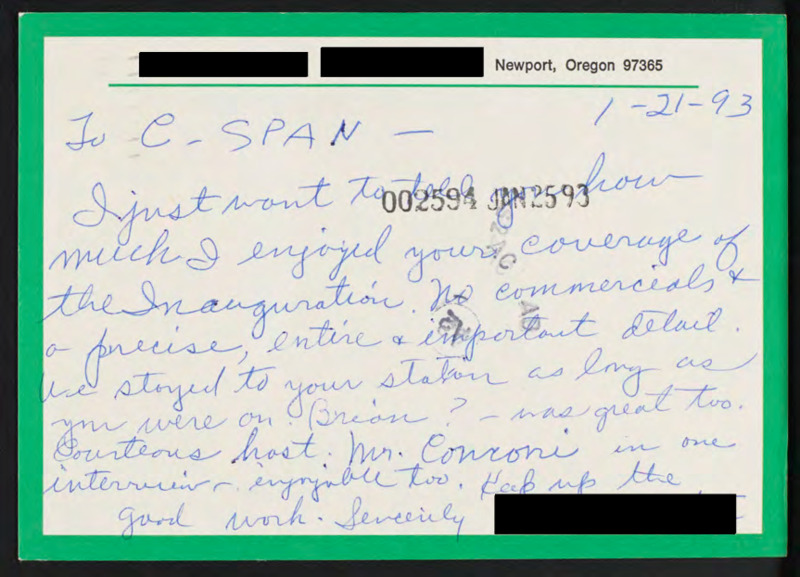 Newport, Oregon 97365
1-21-93
To C-SPAN —
I just want to tell you how
002594 JAN 25 93
much I enjoyed your coverage of
the Inauguration. No commercials &
a precise, entire & important detail.
We stayed to your station as long as
you were on. Brian? - was great too.
Courteous host. Mr. Conroni in one
interview - enjoyable too. Keep up the
good work. Sincerily